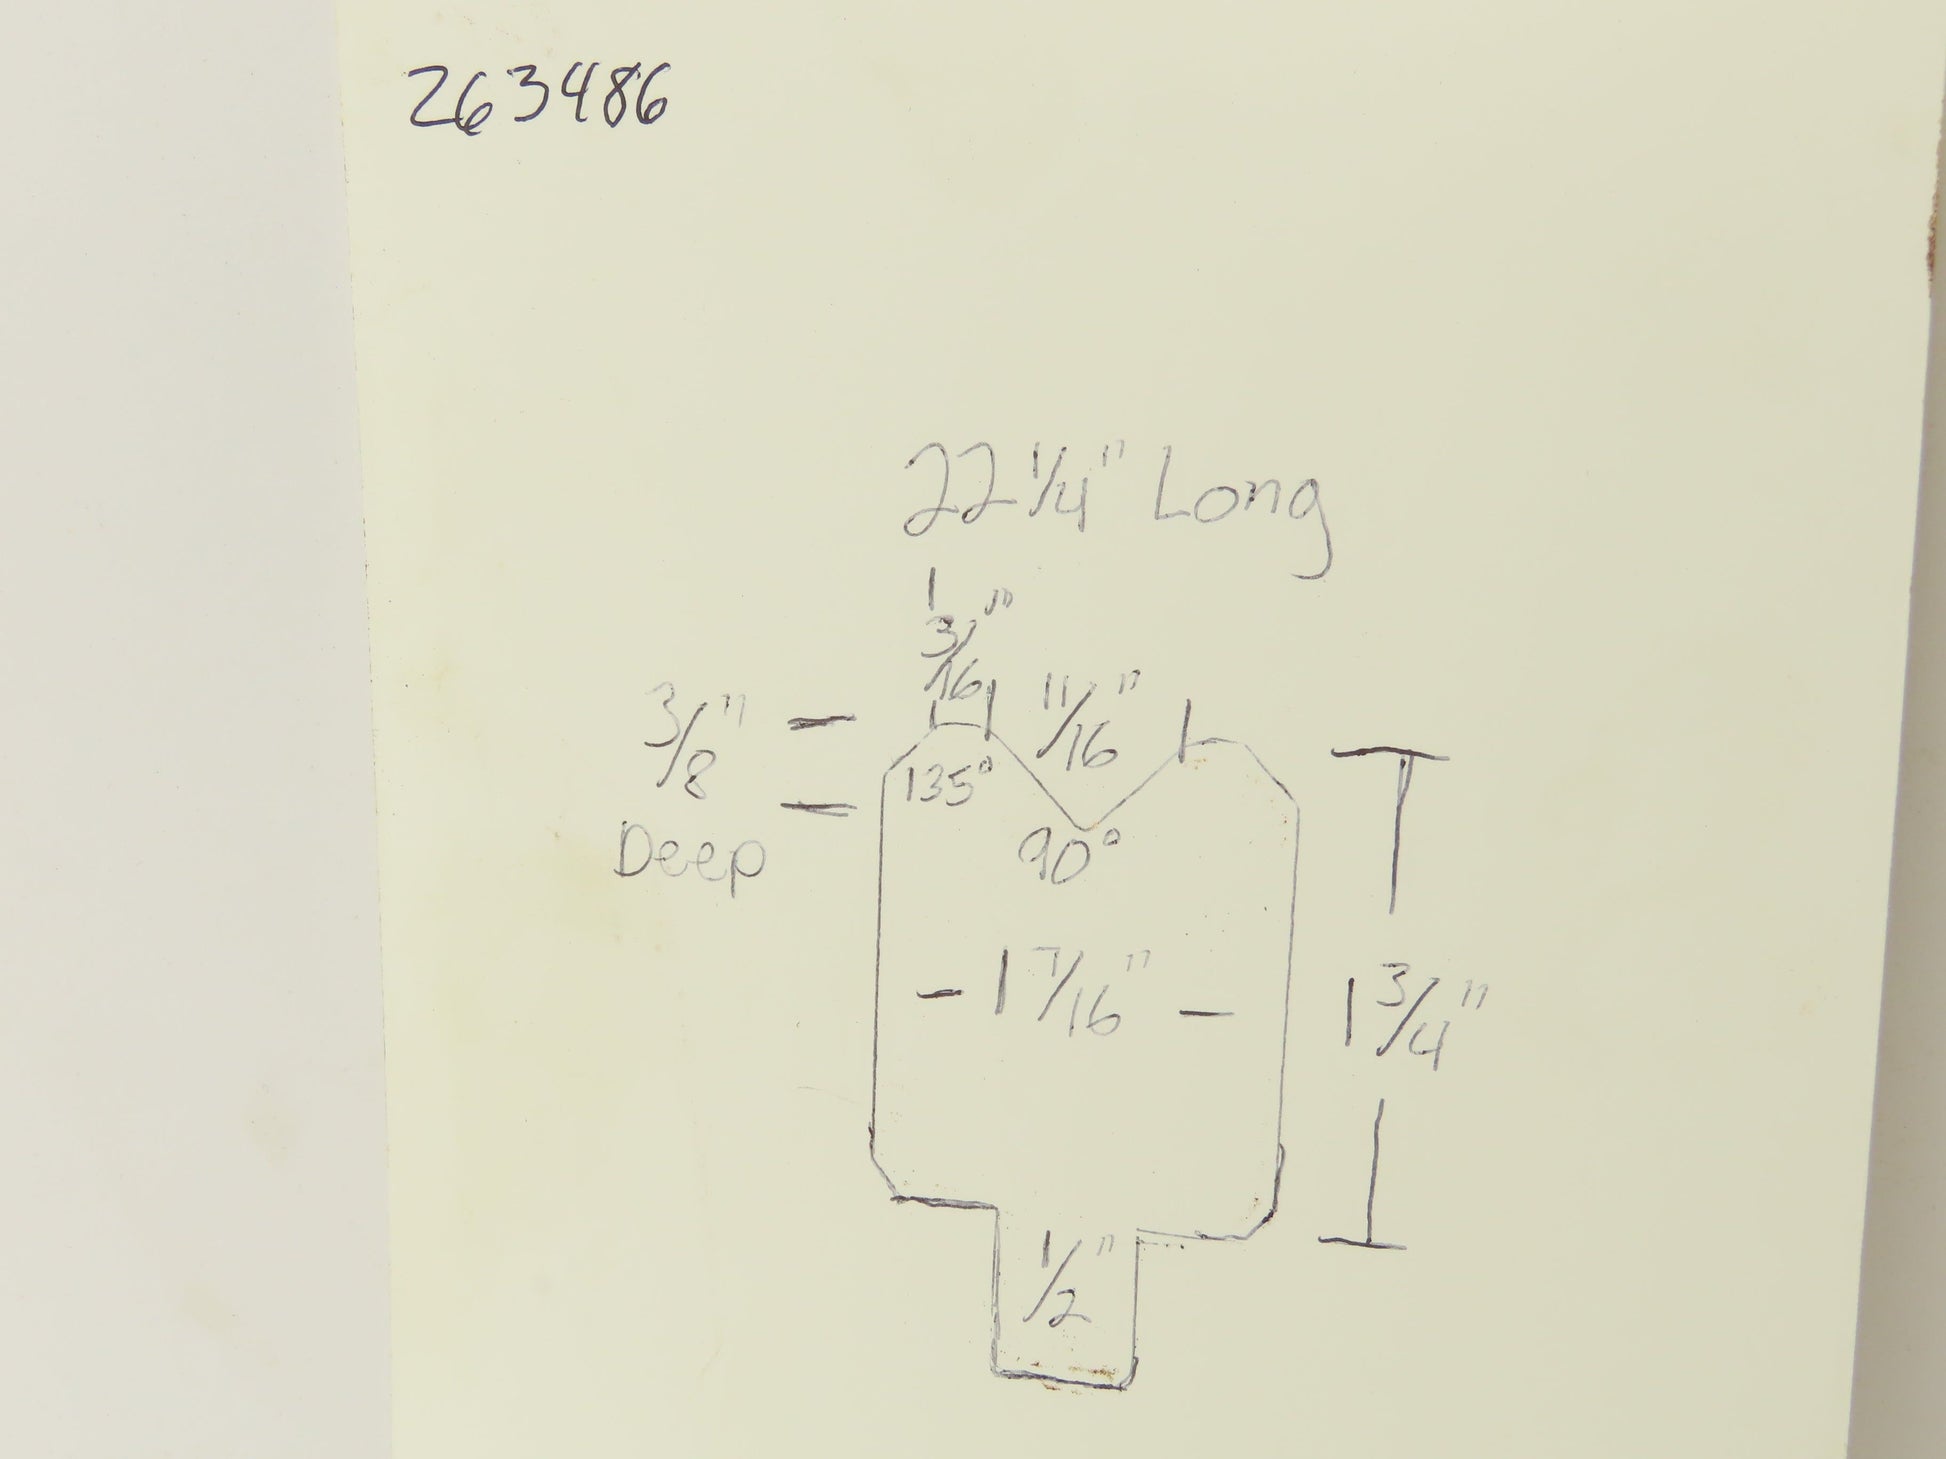 263486
22 1/4" Long
3/16"
11/16"
3/8"
Deep
135°
90°
- 1 7/16" -
1 3/4"
1/2"